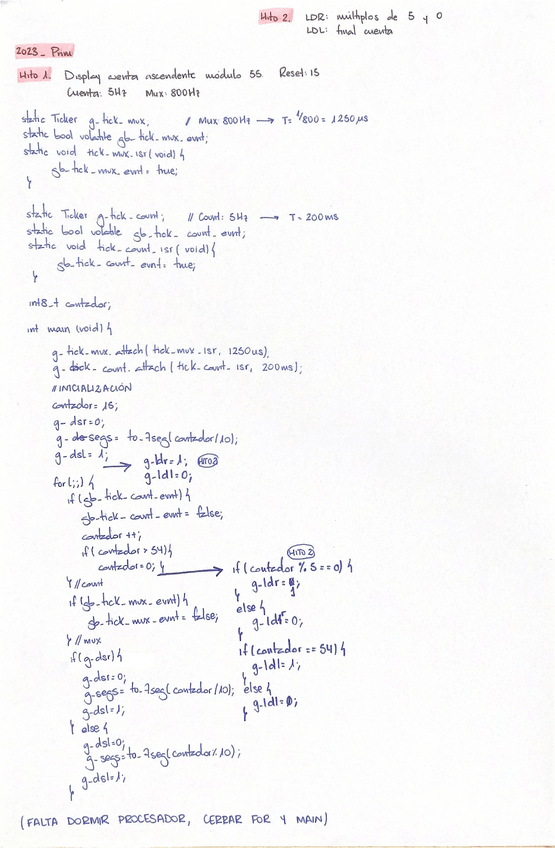 Hito 2. LDR: múltiplos de 5 y 0
LDL: final cuenta
2023_Prim
Hito 1. Display cuenta ascendente módulo 55. Reset: 15
Cuenta: 5Hz Mux: 800Hz
static Ticker g_tick_mux; // Mux 800Hz → T= 1/800 = 1250µs
static bool volatile gb_tick_mux_evnt;
static void tick_mux_isr(void){
gb_tick_mux_evnt = true;
}
static Ticker g_tick_count; // Count: 5Hz → T= 200ms
static bool volatile gb_tick_count_evnt;
static void tick_count_isr(void){
gb_tick_count_evnt= true;
}
int8_t contador;
int main (void) {
g_tick_mux.attach( tick_mux_isr, 1250us);
g_tick_count.attach ( tick_count_isr, 200ms);
// INICIALIZACIÓN
contador= 15;
g_dsr=0;
g_segs= to_7seg(contador/10);
g_dsl= 1; → g_ldr=1; HITO2
g_ldl=0;
for(;;) {
if (gb_tick_count_evnt) {
gb_tick_count_evnt= false;
contador ++;
if( contador > 54){
contador=0; }
} //count
if(gb_tick_mux_evnt) {
gb_tick_mux_evnt= false;
} //mux
if(g_dsr) {
g_dsr=0;
g_segs= to_7seg(contador/10);
g_dsl=1;
} else {
g_dsl=0;
g_segs=to_7seg(contador%10);
g_dsl=1;
}
→ HITO 2
if (contador % 5 ==0) {
g_ldr= 1;
}
else {
g_ldr= 0;
}
if (contador == 54) {
g_ldl= 1;
}
else {
g_ldl=0;
}
(FALTA DORMIR PROCESADOR, CERRAR FOR Y MAIN)